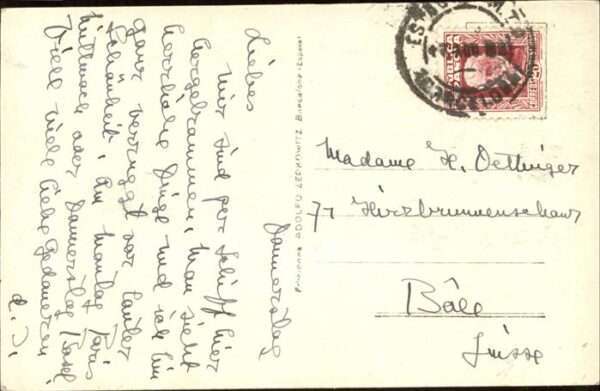 Donnerstag
Liebes
Wir sind per Schiff hier
hergekommen, man sieht
herrliche Dinge und ich bin
ganz verruggt vor lauter
Schönheit. Am Montag Paris
Mittwoch oder Donnerstag Basel.
Viele viele liebe Gedanken
ADOLFO ZERKOWITZ. Barcelona (España)
BARCELONA
Madame H. Oettinger
77 Hirzbrunnenschanz
Bâle
Suisse